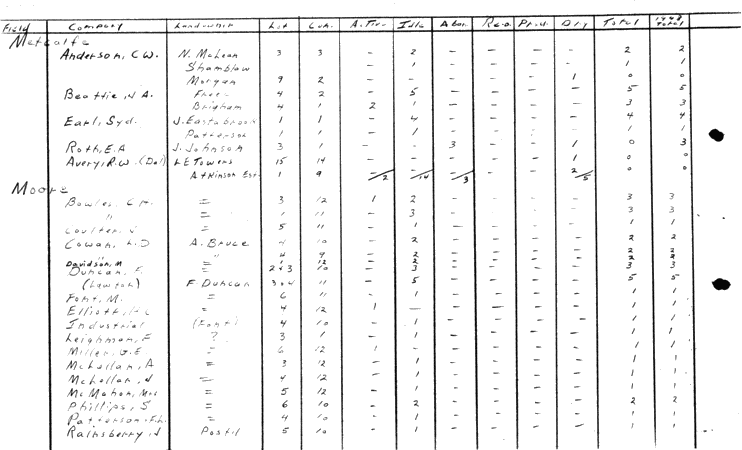 Field Company Landowner Lot Con. A.Tive Idle Aban. Rec. Prod. Dry Total 1948 Total
Metcalfe
Anderson, C.W. N. McLean 3 3 - 2 - - - - 2 2
Shamblaw - 1 - - - - 1 1
Morgan 9 2 - - - - - 1 0 0
Beattie, J A. Free- 4 2 - 5 - - - - 5 5
Brigham 4 1 2 1 - - - - 3 3
Earl, Syd. J. Eastabrook 1 1 - 4 - - - - 4 4
Patterson 1 1 - 1 - - - - 1 1
Roth, E.A J. Johnson 3 1 - - 3 - - 1 0 3
Avery, R.W. (Dol) L E Towers 15 14 - - - - - 1 0 0
Atkinson Est. 1 9 2 14 3 - - 2/5 0 0
Moore
Bowles, C.H. = 3 12 1 2 - - - - 3 3
" = 1 11 - 3 - - - - 3 3
Coulter, J = 5 11 - 1 - - - - 1 1
Cowan, L.D A. Bruce 4 10 - 2 - - - - 2 2
" 4 9 - 2 - - - - 2 2
Davidson, M = 1 12 - 2 - - - - 2 2
Duncan, F. = 2+3 10 - 3 - - - - 3 3
(Lawton) F. Duncan 3+4 11 - 5 - - - - 5 5
Font, M. = 6 11 - 1 - - - - 1 1
Elliott, = 4 12 1 - - - - - 1 1
Industrial (Font) 4 10 - 1 - - - - 1 1
Leighman, F ? 3 1 - 1 - - - - 1 1
Miller, G.E = 6 12 1 - - - - 1 1
McLellan, A = 3 12 - 1 - - - - 1 1
McLellan, J = 4 12 - 1 - - - - 1 1
McMahon, Mrs = 5 12 - 1 - - - - 1 1
Phillips, S = 6 10 - 2 - - - - 2 2
Patterson, F.L. = 4 10 - 1 - - - - 1 1
Rainsberry, J Postil 5 10 - 1 - - - - 1 1